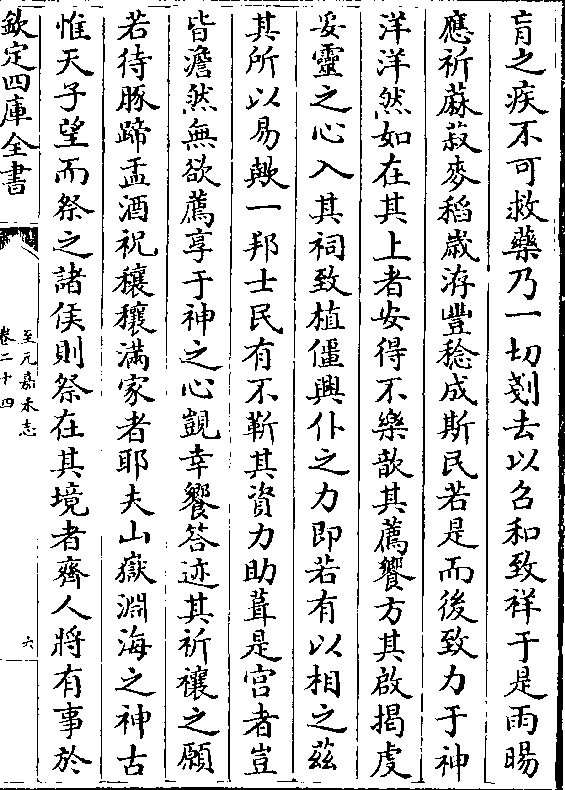 肓之疾不可救藥乃一切剗去以召和致祥于是雨暘
應祈蔴菽麥稻歳洊豐稔成斯民若是而後致力于神
洋洋然如在其上者安得不樂歆其薦饗方其啟揭虔
妥靈之心入其祠致植僵興仆之力即若有以相之兹
其所以易歟一邦士民有不靳其資力助葺是宫者豈
皆澹然無欲薦享于神之心覬幸饗答迹其祈禳之願
若待豚蹄盂酒祝穰穰滿家者耶夫山嶽淵海之神古
惟天子望而祭之諸侯則祭在其境者齊人將有事於
欽定四庫全書
至元嘉禾志
卷二十四
六